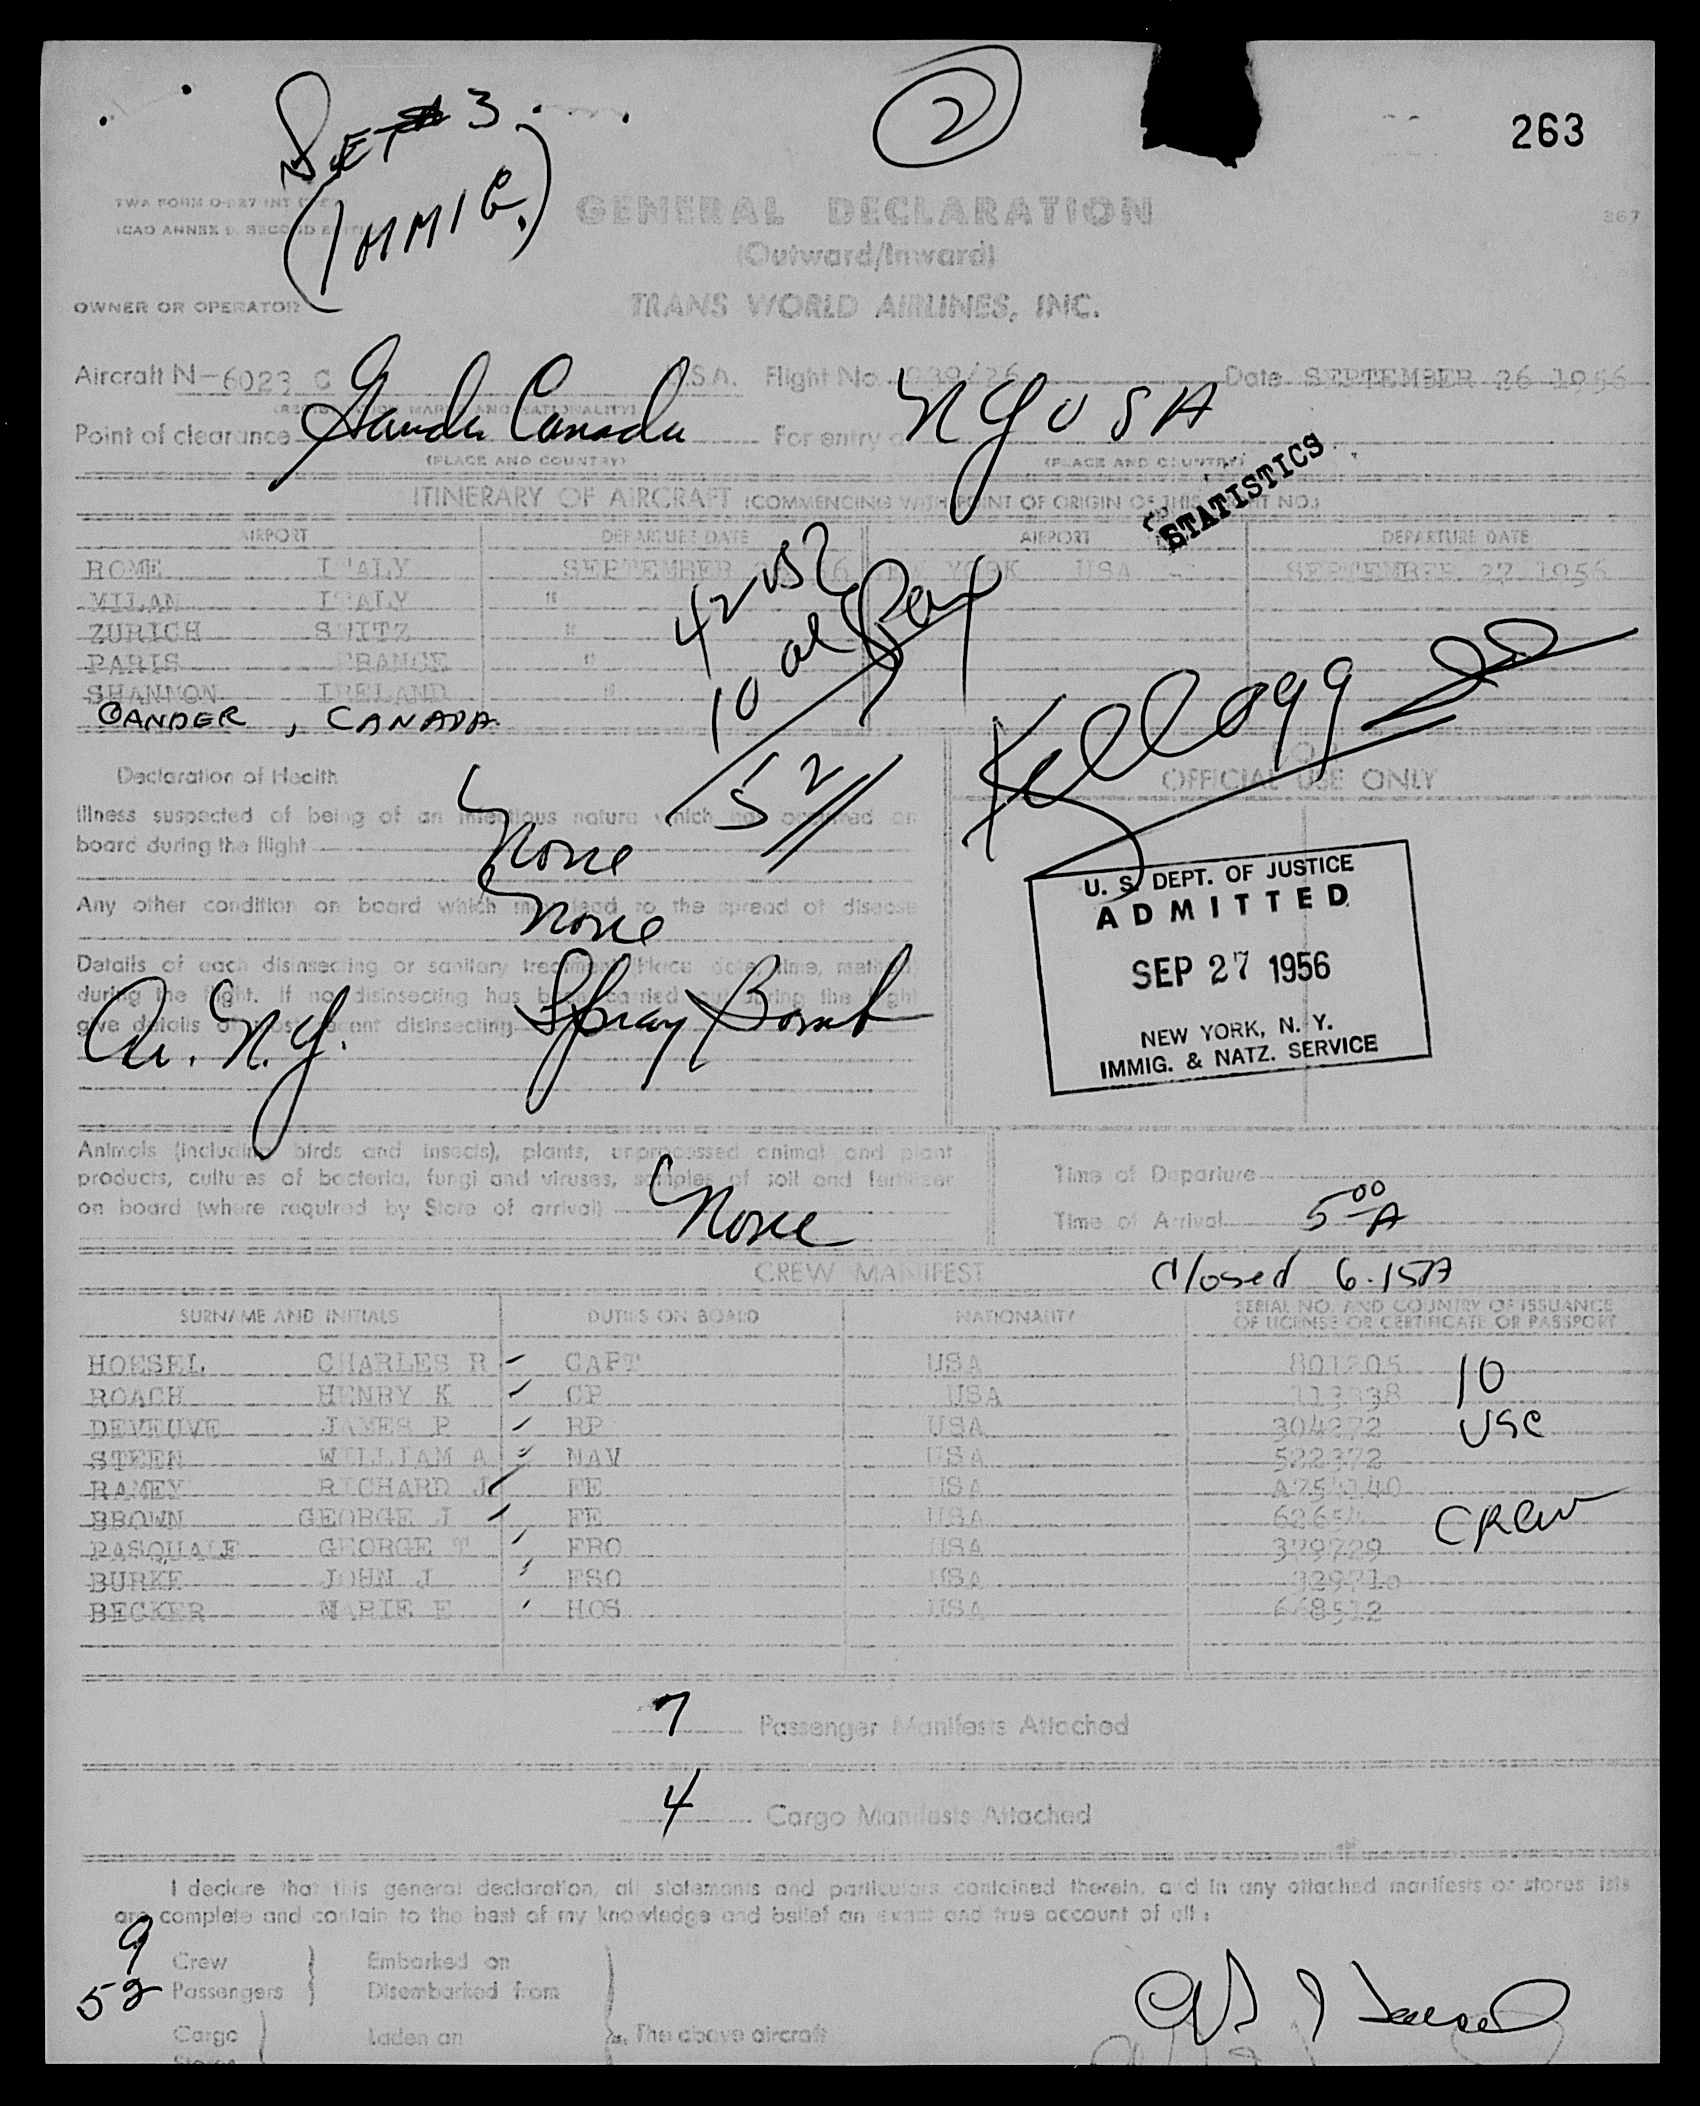 SET # 3
(IMMIG.)
2
263
TWA FORM O-
ICAO ANNEX 9, SECOND EDITION
GENERAL DECLARATION
(Outward/Inward)
267
OWNER OR OPERATOR
TRANS WORLD AIRLINES, INC.
Aircraft N-6023 C U.S.A. Flight No. 939/26 Date SEPTEMBER 26 1956
(REGISTRATION MARKS AND NATIONALITY)
Point of clearance Gander Canada For entry at NY USA
(PLACE AND COUNTRY) (PLACE AND COUNTRY)
STATISTICS
ITINERARY OF AIRCRAFT (COMMENCING WITH POINT OF ORIGIN OF THIS FLIGHT NO.)
AIRPORT DEPARTURE DATE AIRPORT DEPARTURE DATE
ROME ITALY SEPTEMBER NEW YORK USA SEPTEMBER 27 1956
MILAN ITALY "
ZURICH SWITZ "
PARIS FRANCE "
SHANNON IRELAND "
GANDER, CANADA
42 USC
10 al
52
Pax
Kellogg
Declaration of Health
OFFICIAL USE ONLY
Illness suspected of being of an infectious nature which has occurred on
board during the flight None
Any other condition on board which may lead to the spread of disease
None
Details of each disinsecting or sanitary treatment (place, date, time, method)
during the flight. If no disinsecting has been carried out during the flight
give details of most recent disinsecting
Ar. N.Y. Spray Bomb
U. S. DEPT. OF JUSTICE
ADMITTED
SEP 27 1956
NEW YORK, N. Y.
IMMIG. & NATZ. SERVICE
Animals (including birds and insects), plants, unprocessed animal and plant
products, cultures of bacteria, fungi and viruses, samples of soil and fertilizer
on board (where required by State of arrival) None
Time of Departure
Time of Arrival 5 00 A
Closed 6.15A
CREW MANIFEST
SURNAME AND INITIALS DUTIES ON BOARD NATIONALITY SERIAL NO. AND COUNTRY OF ISSUANCE
OF LICENSE OR CERTIFICATE OR PASSPORT
HOESEL CHARLES R CAPT USA 801205
ROACH HENRY K CP USA
DEVEUVE JAMES P RP USA 304272
STEEN WILLIAM A NAV USA 522372
RAMEY RICHARD J FE USA
BROWN GEORGE J FE USA
PASQUALE GEORGE T FRO USA 379729
BURKE JOHN J FSO USA 329710
BECKER MARIE E HOS USA 668512
10
USC
CREW
7 Passenger Manifests Attached
4 Cargo Manifests Attached
I declare that this general declaration, all statements and particulars contained therein, and in any attached manifests or stores lists
are complete and contain to the best of my knowledge and belief an exact and true account of all:
9 Crew Embarked on
52 Passengers Disembarked from
Cargo Laden on The above aircraft
Stores